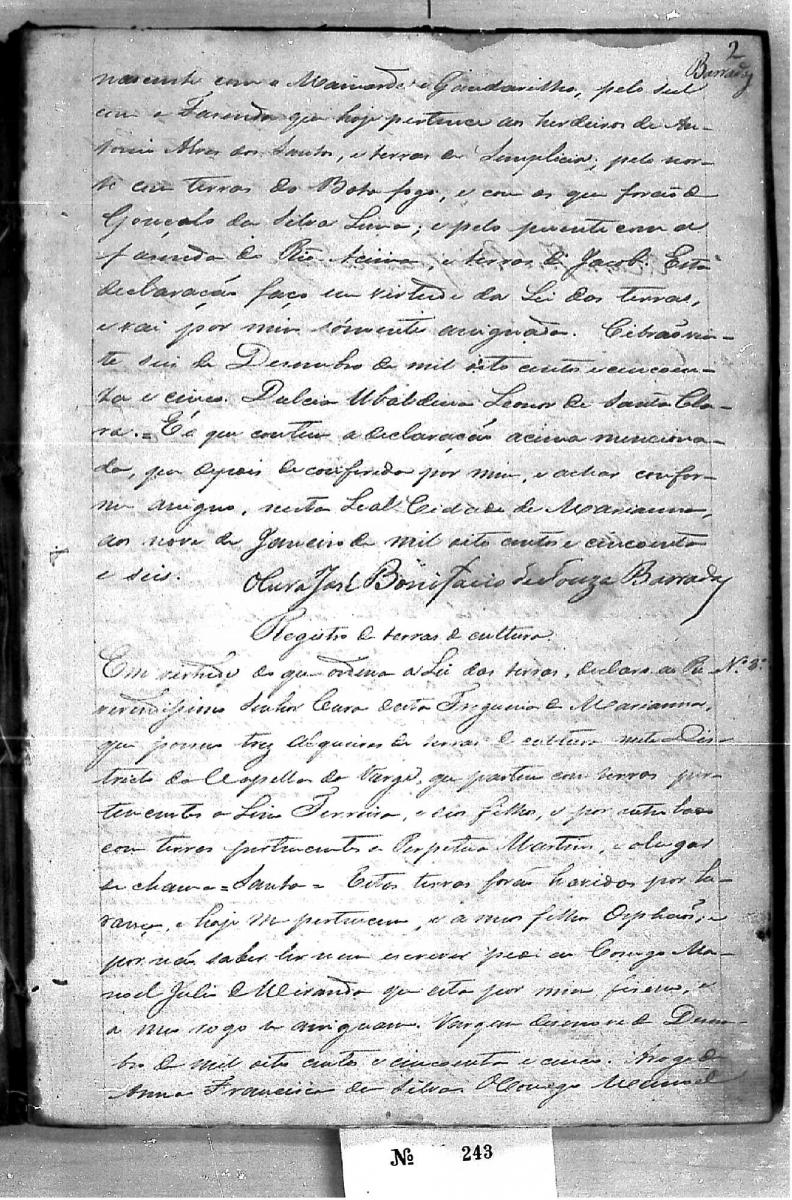 2
Barradas
nascente com o Mainarde e Gandarilho, pelo sul
com a Fazenda que hoje pertence aos herdeiros de An-
tonio Alves dos Santos, e terras de Simplicio; pelo nor-
te com terras do Botafogo, e com as que forão de
Gonçalo da Silva Lima; e pelo poente com a
fazenda do Rio Acima, e terras de Jacob. Esta
declaração faço em virtude da Lei das terras,
e vai por mim sómente assignada. Cibrão vin-
te seis de Desembro de mil oito centos e cincoen-
ta e cinco. Dulcia Ubaldina Leonor de Santa Cla-
ra. = É o que contem a declaração acima menciona-
da, que depois de conferida por mim, e achar confor-
me assigno, nesta Leal Cidade de Marianna,
aos nove de Janeiro de mil oito centos e cincoenta
e seis. O Cura José Bonifacio de Souza Barradas
Registro de terras de cultura
Em virtude do que ordena a Lei das terras, declaro ao Re- Nº 3º
verendissimo Senhor Cura desta Freguesia de Marianna,
que possuo trez alqueires de terras de cultura neste Dis-
tricto da Capella da Varge, que partem com terras per-
tencentes a Lino Ferreira, e seos filhos, e por outro lado
com terras pertencentes a Perpetua Martins, e o lugar
se chama = Santa = Estas terras forão havidas por he-
rança, e hoje me pertencem, e a meus filhos Orphaõs; e
por não saber ler nem escrever pedi ao Conego Ma-
noel Julio de Miranda que esta por mim fizesse, e
a meu rogo se assignasse. Vargem desenove de Desem-
bro de mil oito centos e cincoenta e cinco. Arogo de
Anna Francisca da Silva O Conego Manoel
Nº 243